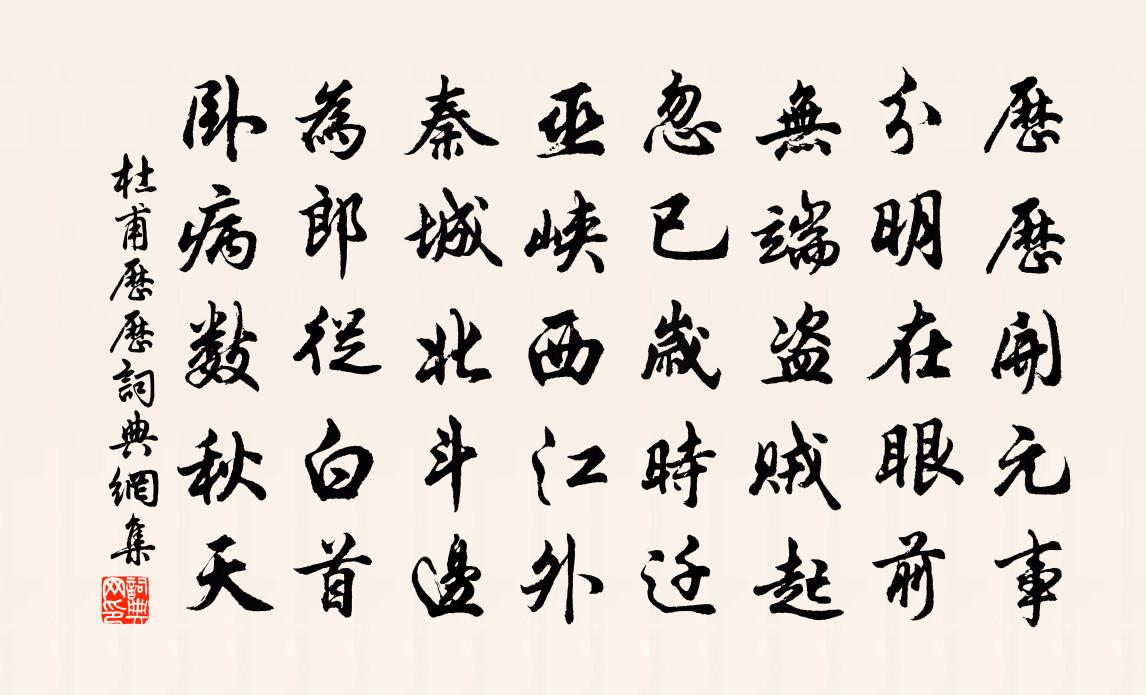 歷歷開元事
分明在眼前
無端盗賊起
忽已歲時迁
巫峽西江外
秦城北斗邊
為郎從白首
卧病數秋天
杜甫歷歷詞典網集
詞典网印